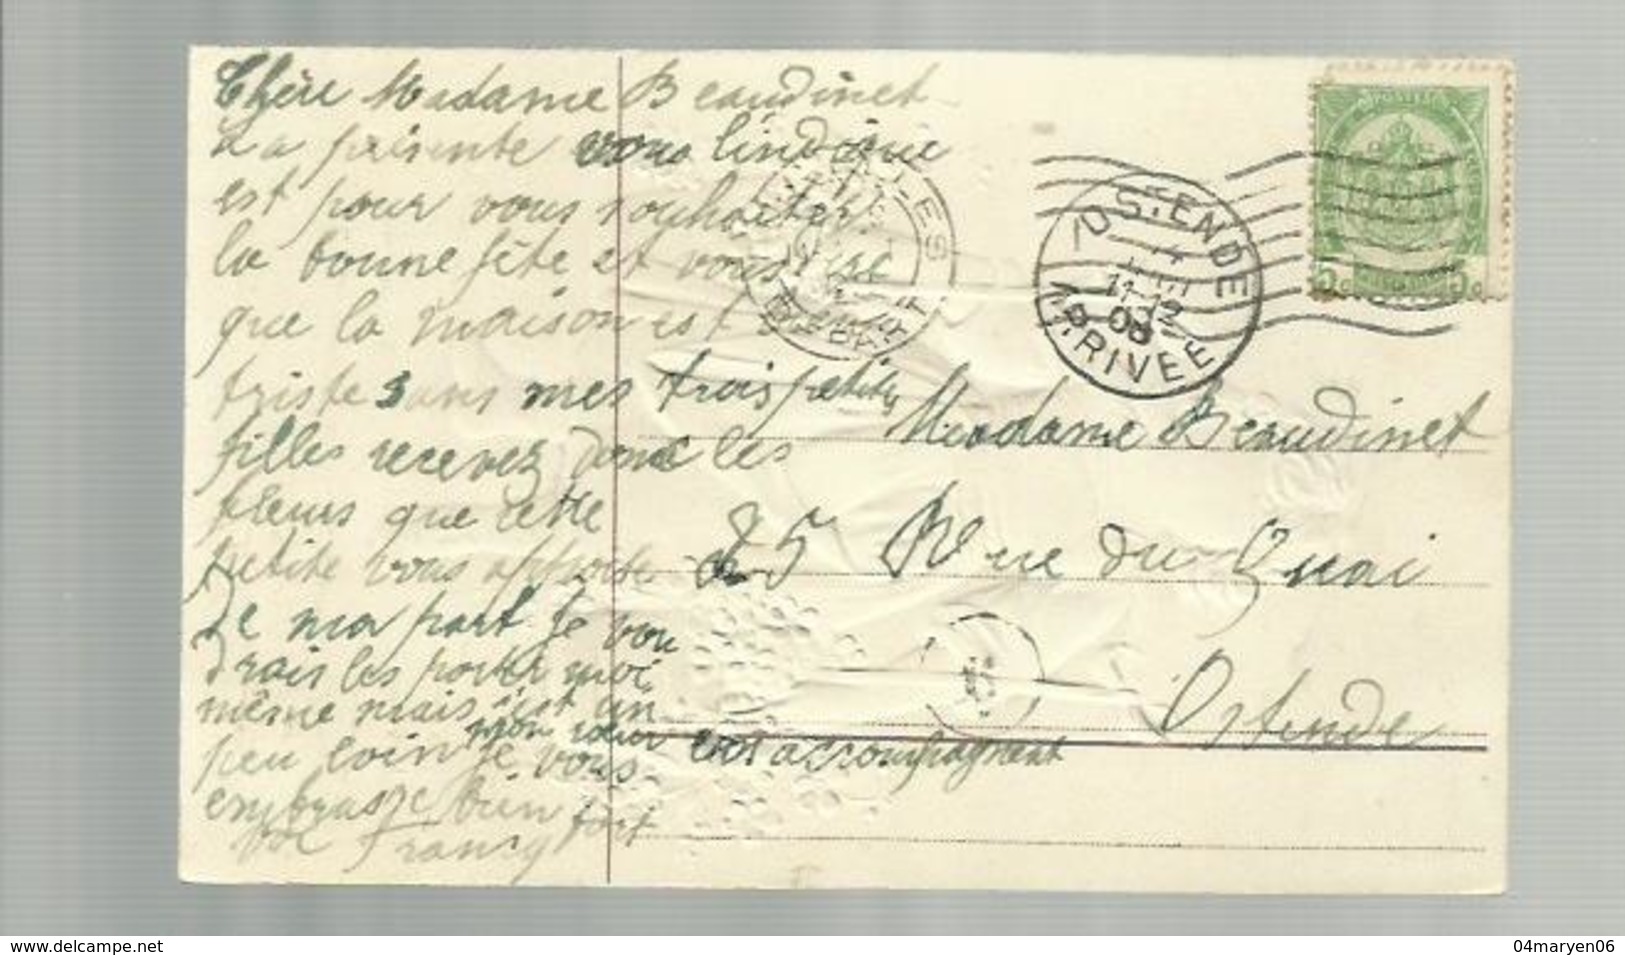 Chère Madame Beaudinet
La présente vous l'indique
est pour vous souhaiter
la bonne fête et vous dire
que la maison est bien
triste sans mes trois petites
filles recevez donc les
fleurs que cette
petite vous apporte
de ma part je vou
drais les porter moi
même mais c'est un
peu loin je vous
mon cœur vous accompagnent
embrasse bien fort
Francy
BRUXELLES
DÉPART
OSTENDE
11-12
08
ARRIVEE
POSTES
5c 5c
Madame Beaudinet
25 Rue du Quai
Ostende
www.delcampe.net
04maryen06